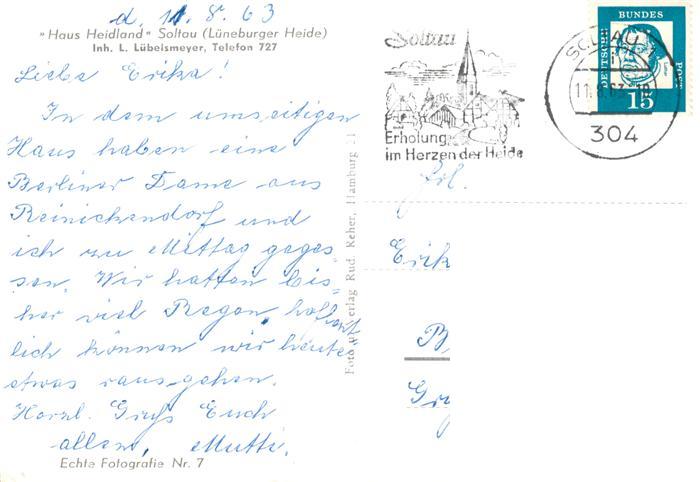 d. 11. 8. 63
„Haus Heidland“ Soltau (Lüneburger Heide)
Inh. L. Lübeismeyer, Telefon 727
Liebe Erika!
In dem umseitigen
Haus haben eine
Berliner Dame aus
Reinickendorf und
ich zu Mittag geges
sen. Wir hatten bis=
her viel Regen, hoffent
lich können wir heute
etwas raus-gehen.
Herzl. Grüß Euch
allen, Mutti.
Echte Fotografie Nr. 7
Foto u. Verlag Rud. Reher, Hamburg 11
Soltau
Erholung
im Herzen der Heide
SOLTAU 1
11.8.63
304
DEUTSCHE
BUNDES
POST
15
Frl.
Erik
B